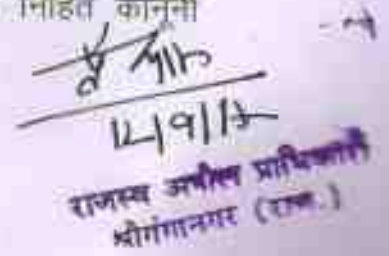 निहित कानूनी
12/9/17
राजस्व अपील प्राधिकारी
श्रीगंगानगर (राज.)